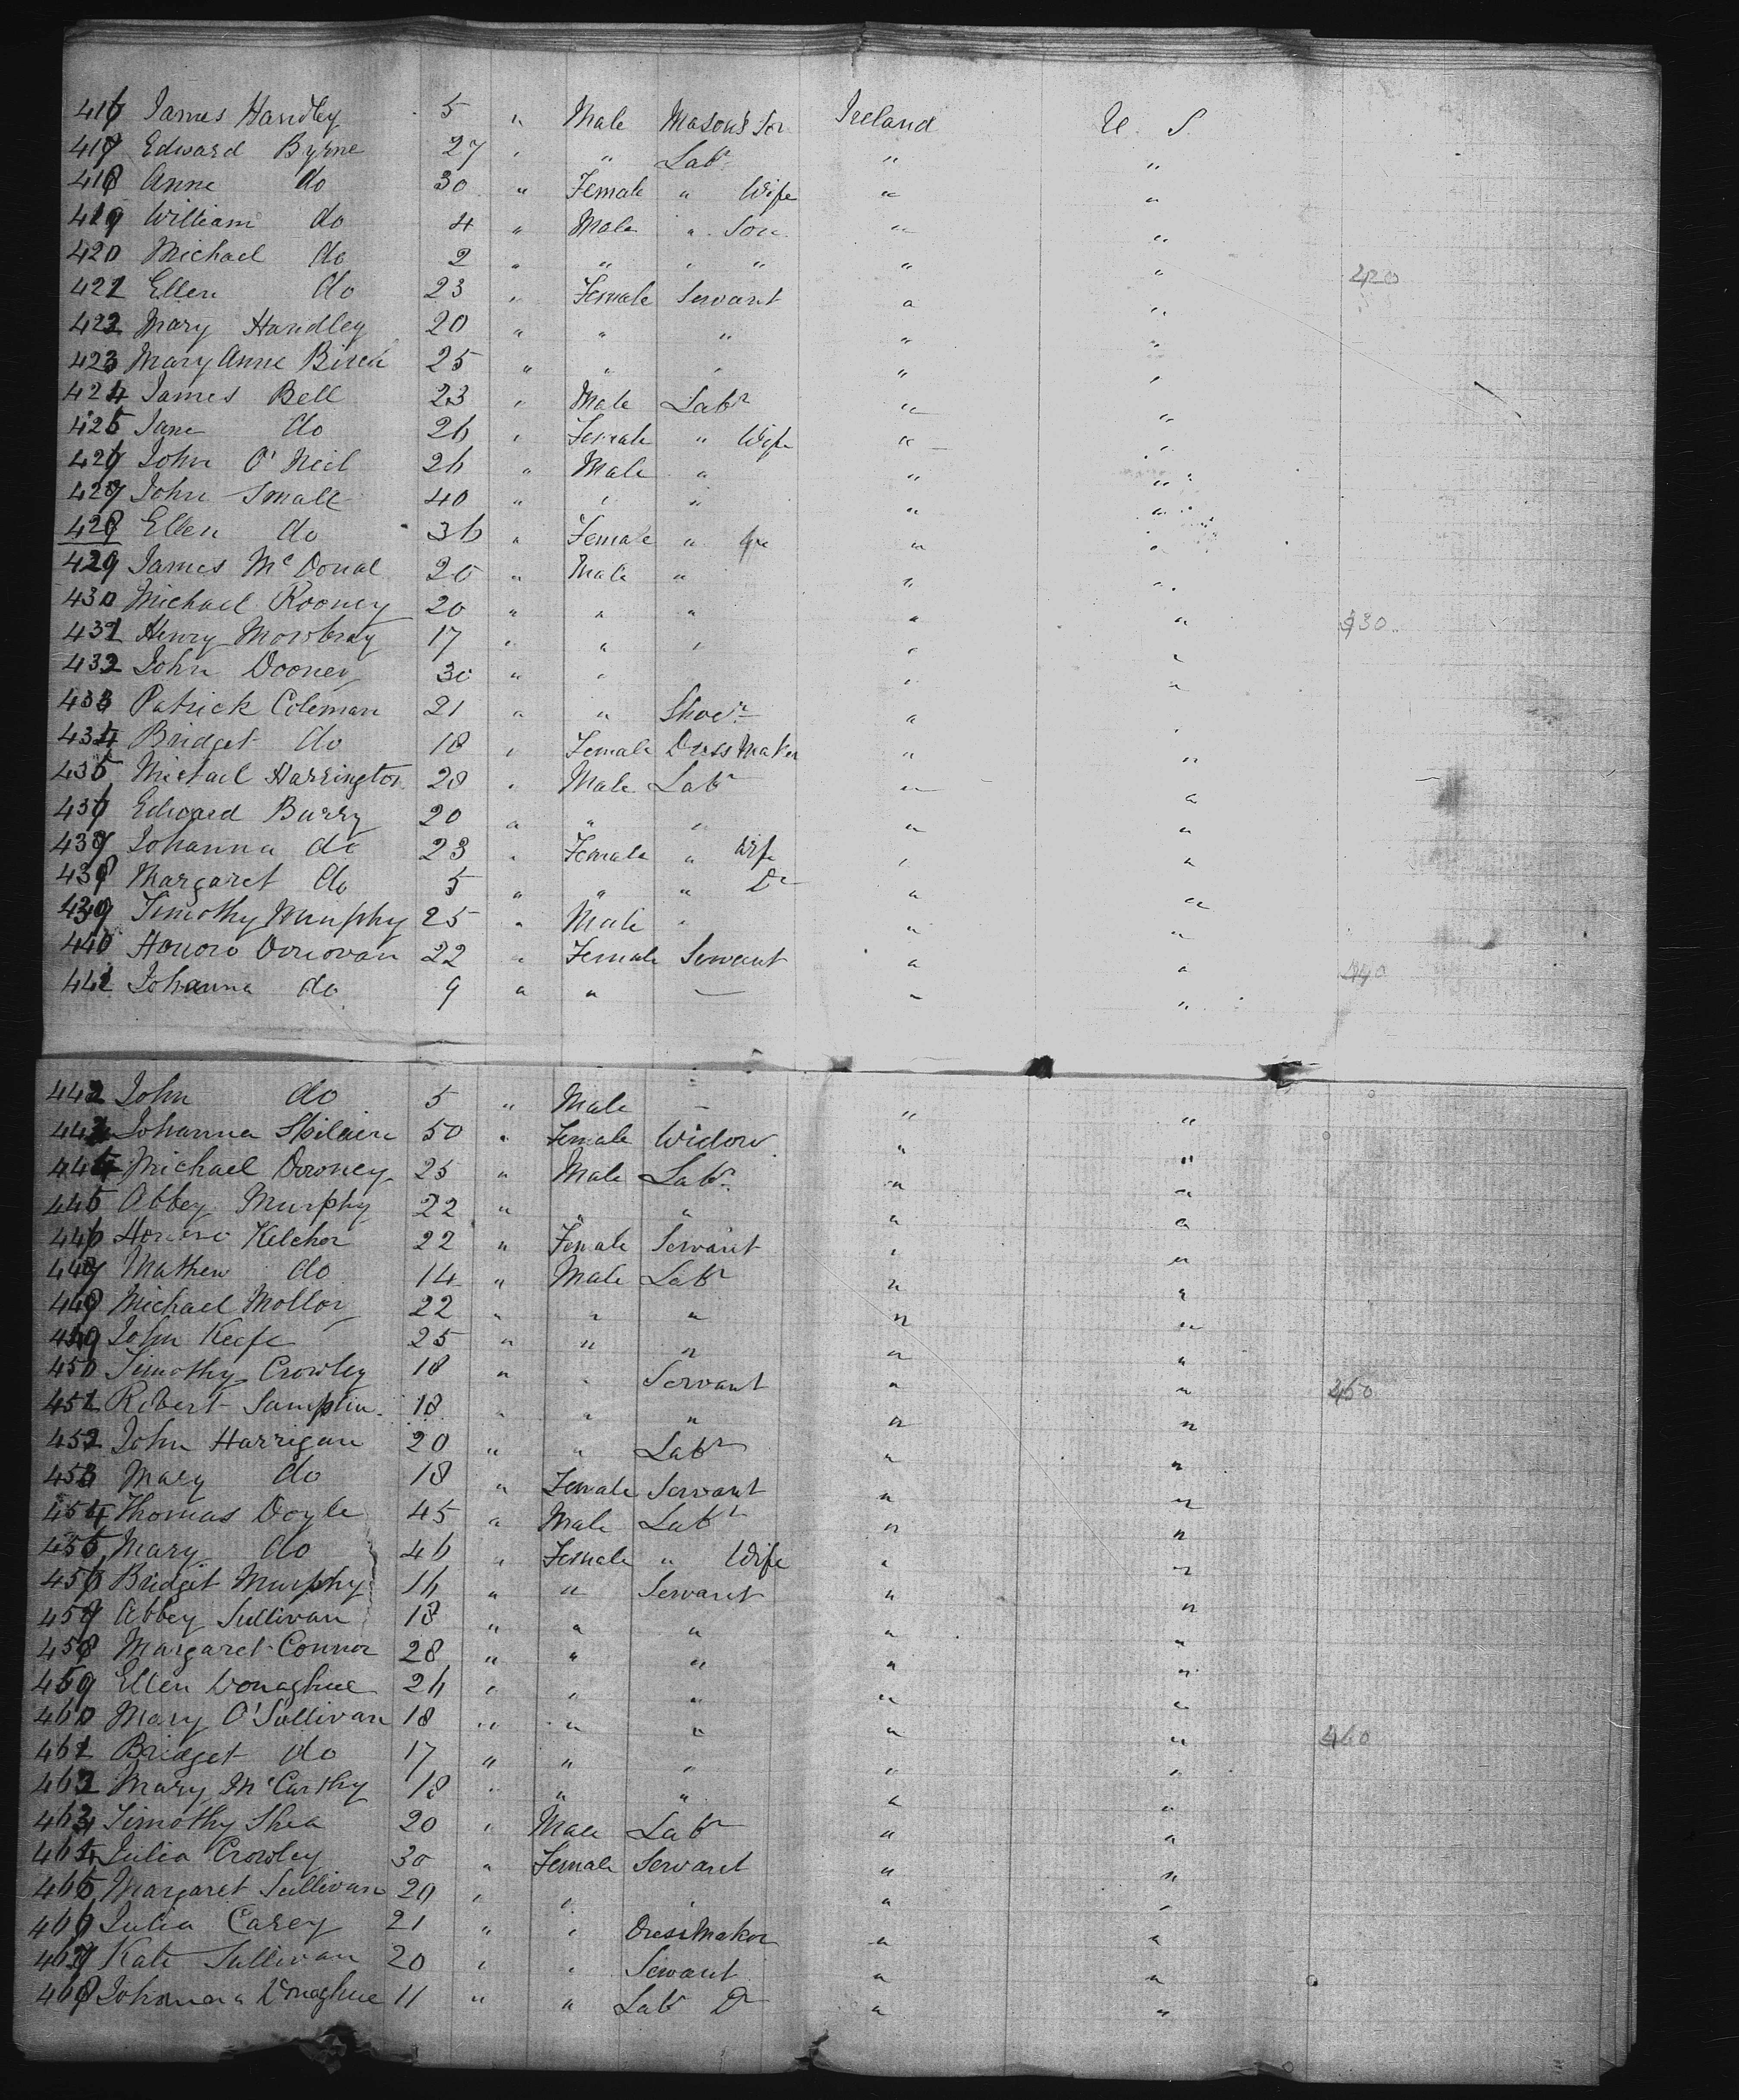 416 James Handley 5 " Male Mason's Son Ireland U. S
417 Edward Byrne 27 " " Labr " "
418 Anne do 30 " Female " Wife " "
419 William do 4 " Male " Son " "
420 Michael do 2 " " " " " " 420
421 Ellen do 23 " Female Servant " "
422 Mary Handley 20 " " " " "
423 Mary Anne 25 " " " " "
424 James Bell 23 " Male Labr " "
425 Jane do 26 " Female " Wife " "
426 John O'Neil 26 " Male " " "
427 John Small 40 " " " " "
428 Ellen do 36 " Female " " "
429 James McDonal 20 " Male " " "
430 Michael Rooney 20 " " " " " 430
431 Henry Mowbray 17 " " " " "
432 John Dooney 30 " " " " "
433 Patrick Coleman 21 " " Shoer " "
434 Bridget do 18 " Female Dress Maker " "
435 Michael Harrington 28 " Male Labr " "
436 Edward Barry 20 " " " " "
437 Johanna do 23 " Female " Wife " "
438 Margaret do 5 " " " Dr " "
439 Timothy Murphy 25 " Male " " "
440 Honoro Donovan 22 " Female Servant " " 440
441 Johanna do 9 " " — " "
442 John do 5 " Male — " "
443 Johanna Spilain 50 " Female Widow " "
444 Michael Downey 25 " Male Labr " "
445 Abbey Murphy 22 " " " " "
446 Kelcher 22 " Female Servant " "
447 Mathew do 14 " Male Labr " "
448 Michael Molloy 22 " " " " "
449 John Keefe 25 " " " " "
450 Timothy Crowley 18 " " Servant " " 450
451 Robert Samplin 18 " " " " "
452 John Harrigan 20 " " Labr " "
453 Mary do 18 " Female Servant " "
454 Thomas Doyle 45 " Male Labr " "
455 Mary do 46 " Female " Wife " "
456 Bridget Murphy 16 " " Servant " "
457 Abbey Sullivan 18 " " " " "
458 Margaret Connor 28 " " " " "
459 Ellen Donaghue 26 " " " " "
460 Mary O'Sullivan 18 " " " " " 460
461 Bridget do 17 " " " " "
462 Mary McCarthy 18 " " " " "
463 Timothy Shea 20 " Male Labr " "
464 Julia Crowley 30 " Female Servant " "
465 Margaret Sullivan 20 " " " " "
466 Julia Carey 21 " " Dressmaker " "
467 Kate Sullivan 20 " " Servant " "
468 Johanna Donaghue 11 " " Labr Dr " "